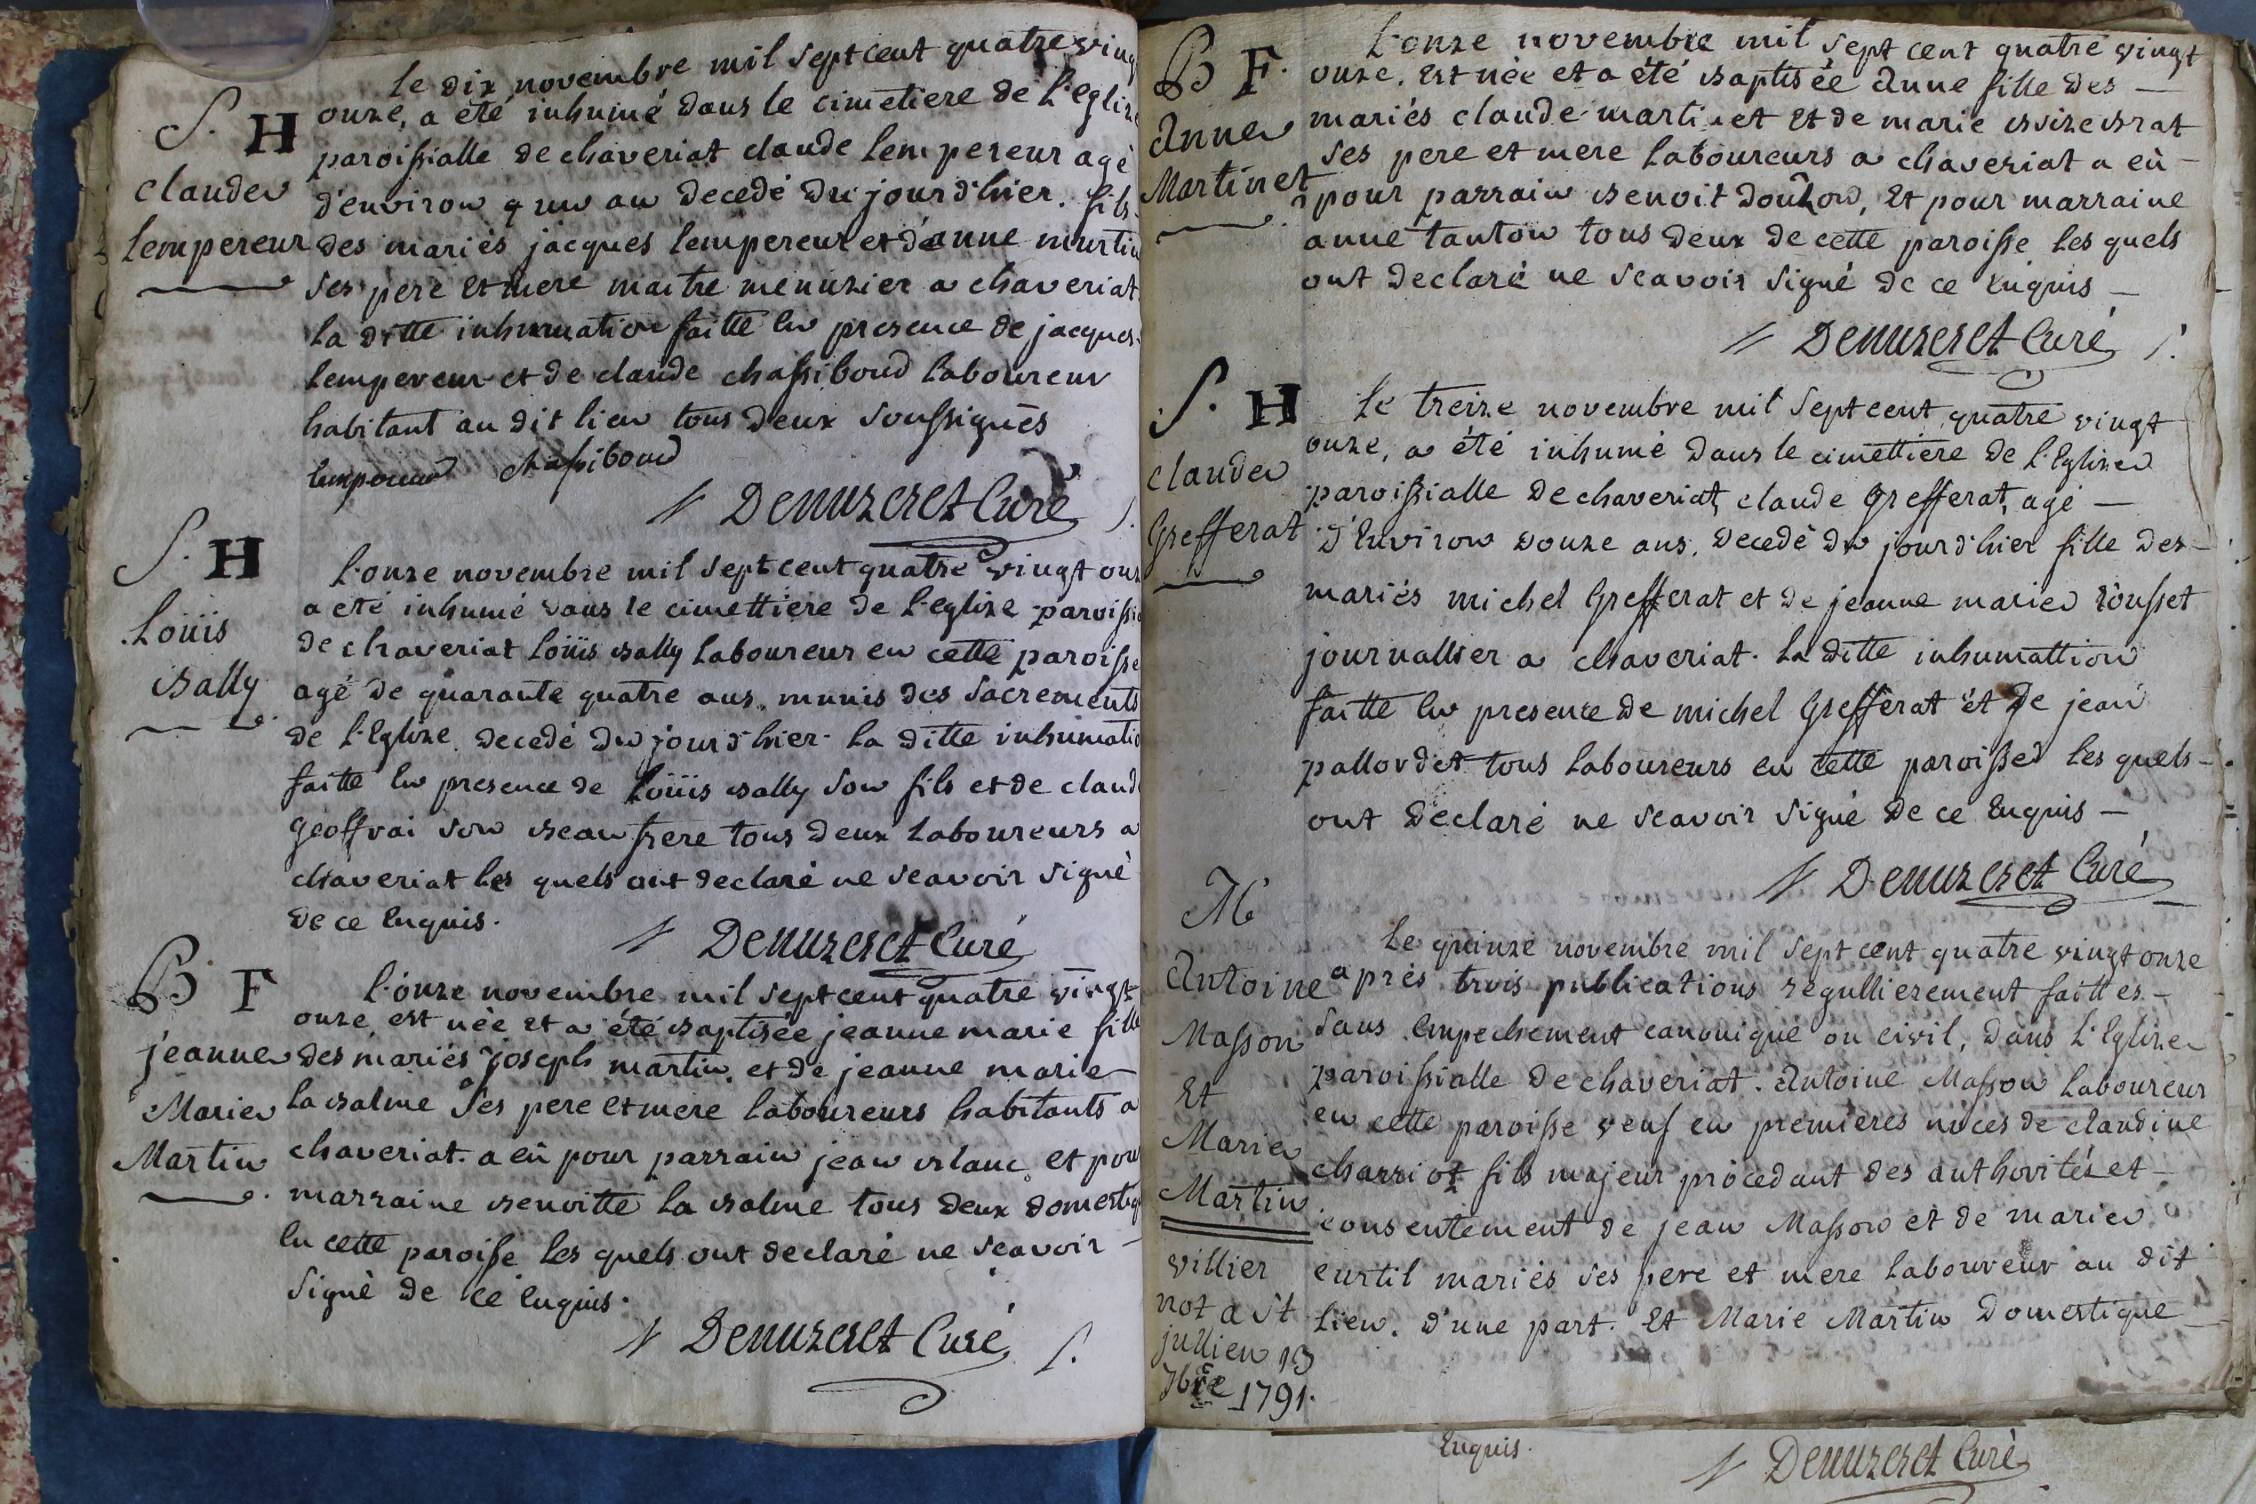 S. H
Claude
Lempereur
Le dix novembre mil sept cent quatre ving
onze, a été inhumé dans le cimetiere de L'eglize
paroissialle de chaveriat claude Lempereur agé
d'environ un an decedé du jourd'hier. fils
des mariés jacques Lempereur et d'anne martin
ses pere et mere maitre menuzier a chaveriat
La ditte inhumation faitte en presence de jacques
Lempereur et de claude chassiboud Laboureur
habitant au dit lieu tous deux soussignés
Lempereur chassiboud
Denuzeret Curé
S. H
Loüis
bally
L'onze novembre mil sept cent quatre vingt onz
a eté inhumé dans le cimettiere de L'eglize paroissi
de chaveriat Loüis bally Laboureur en cette paroisse
agé de quarante quatre ans. munis des sacrements
de L'Eglize. decedé du jourd'hier. La ditte inhumatio
faitte en presence de Loüis bally son fils et de claud
geoffrai son beau frere tous deux Laboureurs a
chaveriat les quels ont declaré ne scavoir signé
de ce Enquis.
Denuzeret Curé
B F
jeanne
Marie
Martin
L'onze novembre mil sept cent quatre vingt
onze, est née et a été baptisée jeanne marie fille
des mariés joseph martin. et de jeanne marie
La balme ses pere et mere laboureurs habitants a
chaveriat. a eù pour parrain jean blanc et pour
marraine benoitte La balme tous deux domestiq
En cette paroisse les quels ont declaré ne scavoir
signé de ce Enquis.
Denuzeret Curé
B F.
Anne
Martinet
L'onze novembre mil sept cent quatre vingt
onze. Est née et a été baptisée Anne fille des
mariés claude martinet Et de marie bizebrat
ses pere et mere Laboureurs a chaveriat a eù
pour parrain benoit Et pour marraine
anne tanton tous deux de cette paroisse les quels
ont declaré ne scavoir signé de ce Enquis
Denuzeret Curé
S. H
Claude
Grefferat
Le treize novembre mil sept cent quatre vingt
onze, a été inhumé dans le cimettiere de L'Eglize
paroissialle de chaveriat, claude Grefferat, agé
d'Environ douze ans. decedé du jourd'hier fille des
mariés michel Grefferat et de jeanne marie rousset
journallier a chaveriat. La ditte inhumattion
faitte En presence de michel Grefferat et de jean
pallordet tous Laboureurs en cette paroisse les quels
ont declaré ne scavoir signé de ce Enquis
Denuzeret Curé
M
Antoine
Masson
Et
Marie
Martin
villier
not a st
jullien 13
7bre 1791.
Le quinze novembre mil sept cent quatre vingt onze
aprés trois publications regullierement faittes
sans Empechement canonique ou civil, dans L'Eglize
paroissialle de chaveriat. Antoine Masson Laboureur
en cette paroisse veuf en premieres nôces de claudine
charriot fils majeur procedant des authorités et
consentement de jean Masson et de marie
curtil mariés ses pere et mere laboureur au dit
lieu. d'une part. Et Marie Martin Domestique
Enquis.
Denuzeret Curé